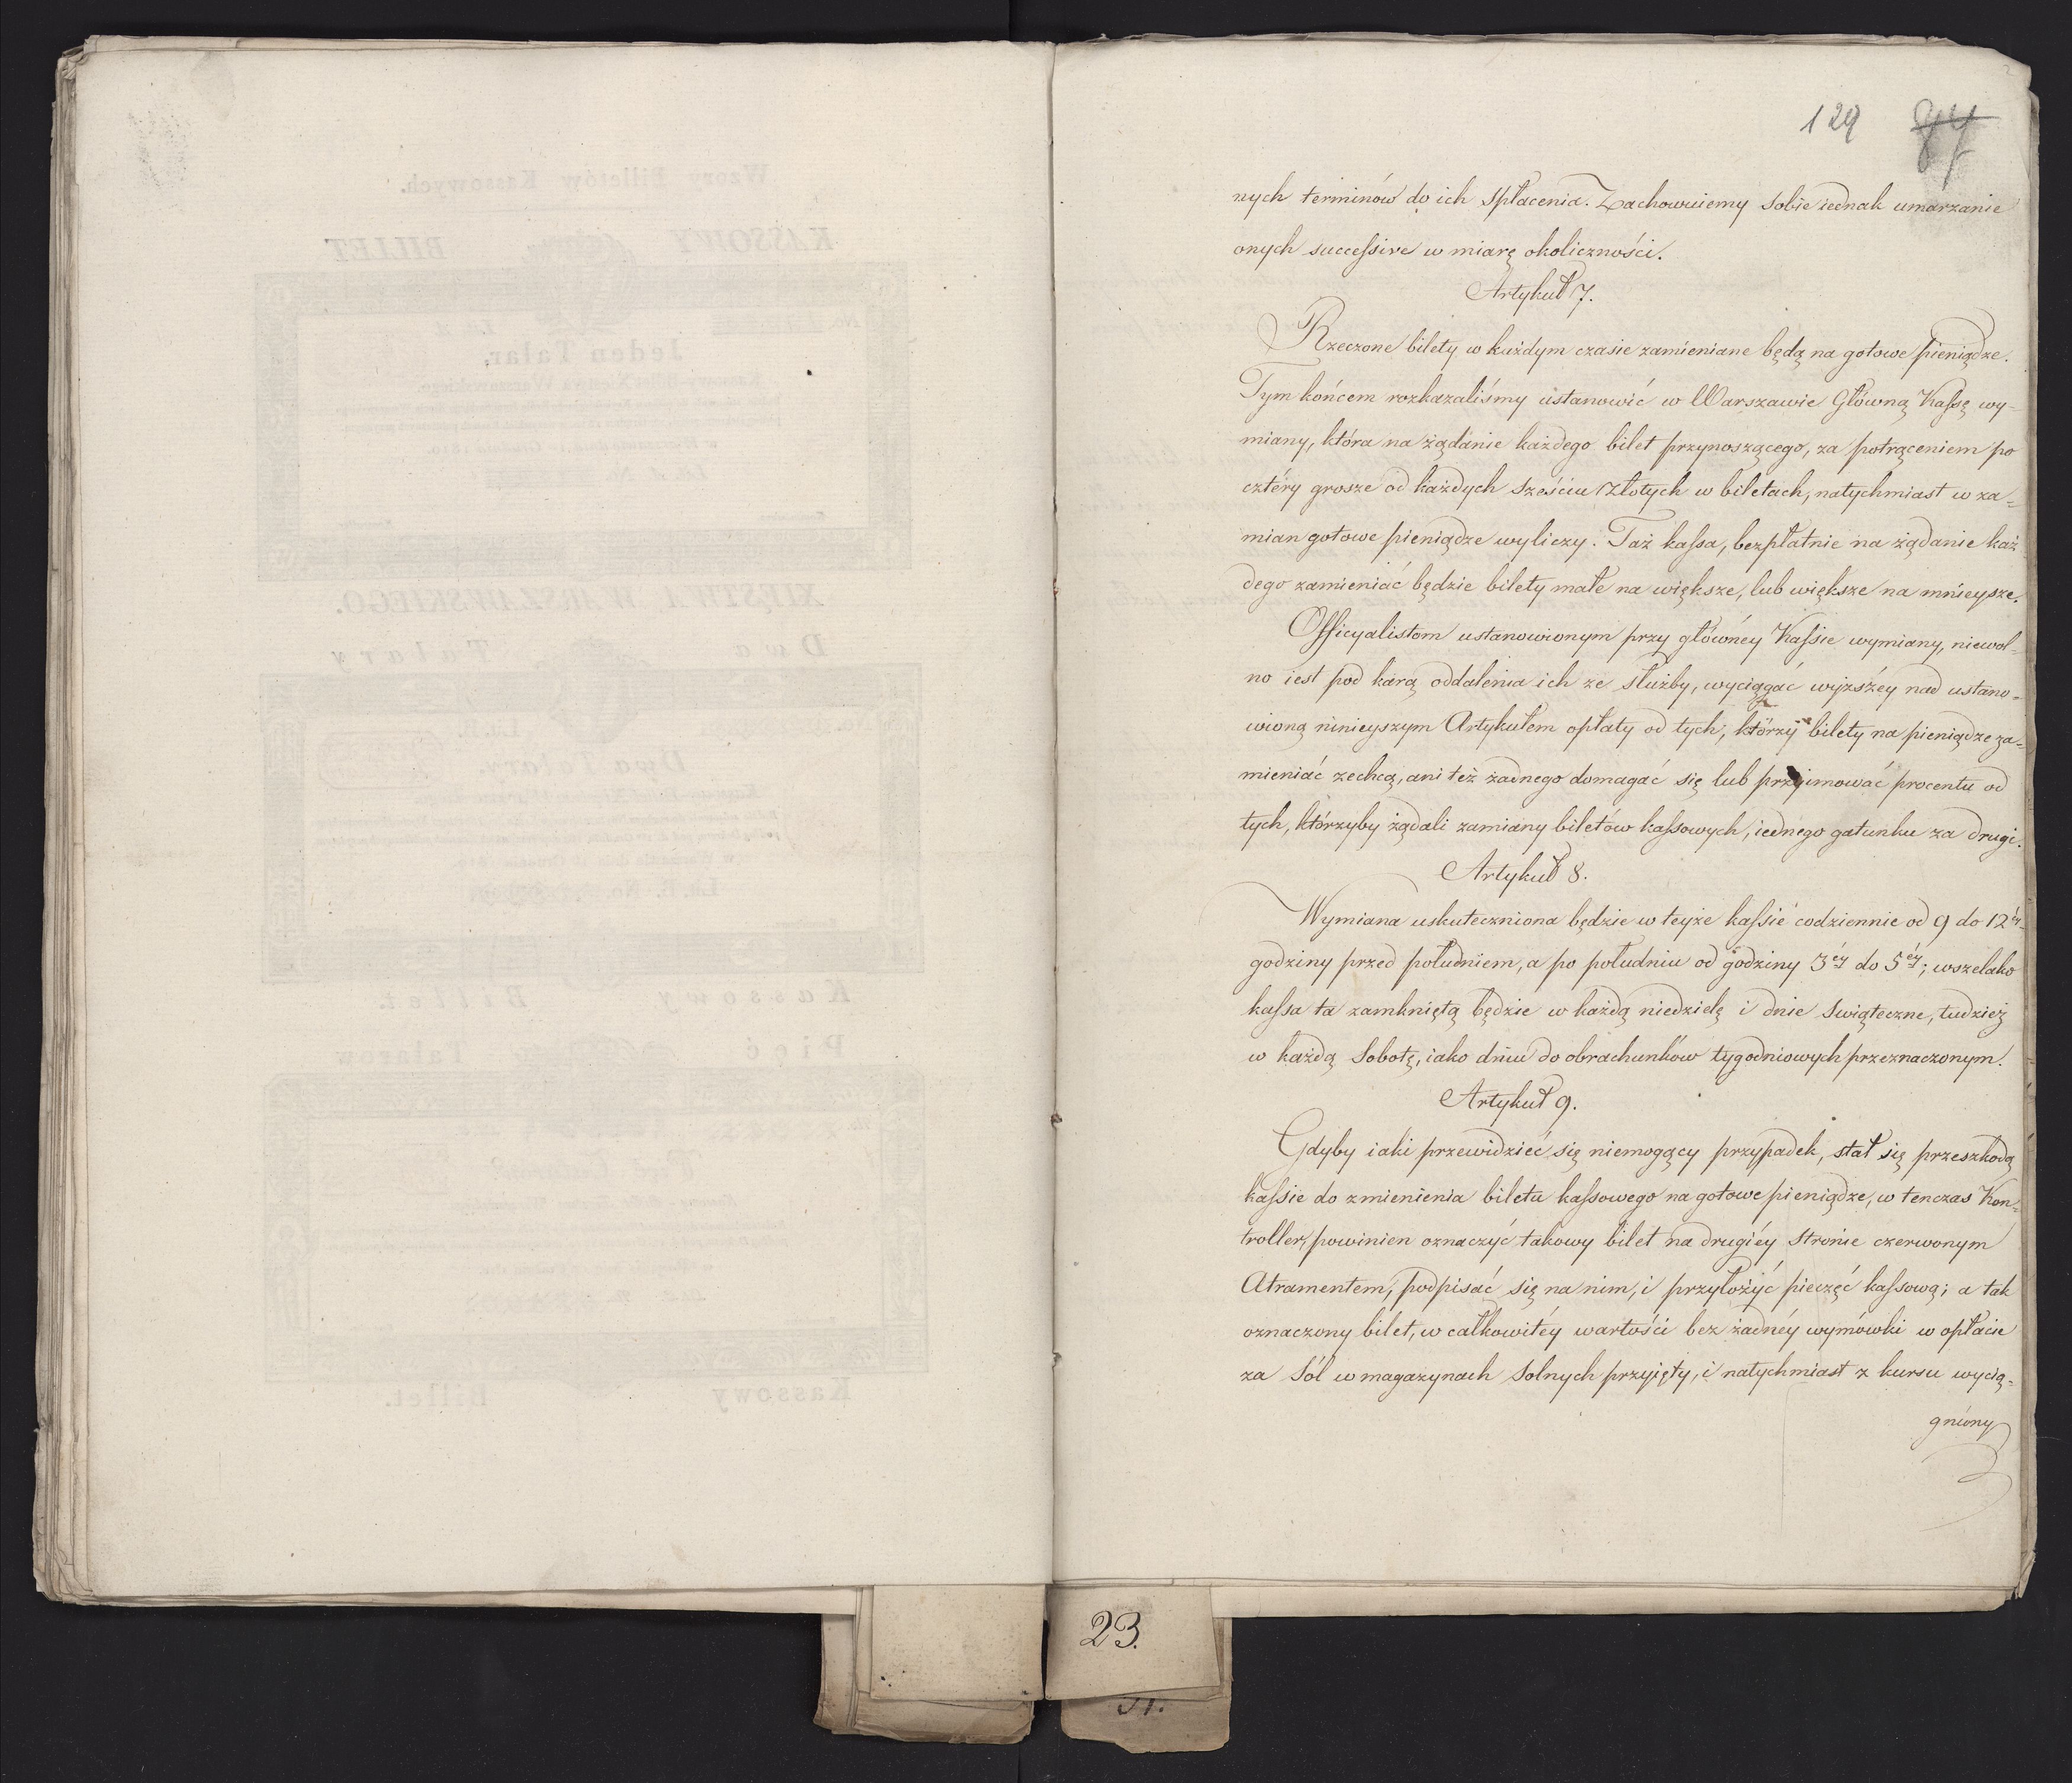 129 84
nych terminów do ich spłacenia. Zachowuiemy sobie iednak umarzanie
onych successive w miarę okoliczności.
Artykuł 7.
Rzeczone bilety w każdym czasie zamieniane będą na gotowe pieniądze.
Tym końcem rozkazaliśmy ustanowić w Warszawie Główną Kassę wy-
miany, która na żądanie każdego bilet przynoszącego, za potrąceniem po
cztéry grosze od każdych sześciu złotych w biletach, natychmiast w za-
mian gotowe pieniądze wyliczy. Taż kassa, bezpłatnie na żądanie każ
dego zamieniać będzie bilety małe na większe, lub większe na mnieysze.
Officyalistom ustanowionym przy główney Kassie wymiany, niewol-
no iest pod karą oddalenia ich ze służby, wyciągać wyższéy nad ustano-
wioną ninieyszym Artykułem opłaty od tych, którzy bilety na pieniądze za-
mieniać zechcą, ani też żadnego domagać się lub przyimować procentu od
tych, którzyby żądali zamiany biletów kassowych, iednego gatunku za drugi.
Artykuł 8.
Wymiana uskuteczniona będzie w teyże kassie codziennie od 9 do 12éy
godziny przed południem, a po południu od godziny 3éy do 5éy; wszelako
kassa ta zamkniętą będzie w każdą niedzielę i dnie świąteczne, tudzież
w każdą Sobotę, iako dniu do obrachunków tygodniowych przeznaczonym.
Artykuł 9.
Gdyby iaki przewidzieć się niemogący przypadek, stał się przeszkodą
kassie do zmienienia biletu kassowego na gotowe pieniądze, w tenczas Kon-
troller, powinien oznaczyć takowy bilet na drugiéy stronie czerwonym
Atramentem, podpisać się na nim, i przyłożyć pieczęć kassową; a tak
oznaczony bilet, w całkowitéy wartości bez żadnéy wymówki w opłacie
za Sól w magazynach Solnych przyięty, i natychmiast z kursu wycią-
gniony
23.
Wzory Billetów Kassowych.
KASSOWY BILLET
Jeden Talar,
XIĘSTWA WARSZAWSKIEGO.
Dwa Talary
Dwa Talary.
Kassowy Billet.
Pięć Talarów
Kassowy Billet.